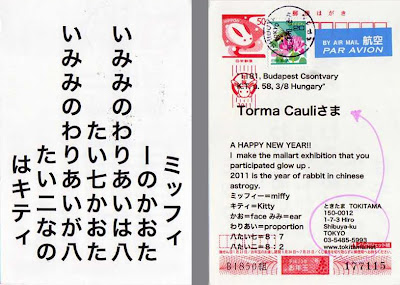 ミッフィ
ーのかおた
いみみのわりあいは八
たい七かおた
いみみのわりあいが八
たい二なの
はキティ
郵便はがき
50
BY AIR MAIL 航空
PAR AVION
1181, Budapest Csontvary
58, 3/8 Hungary"
Torma Cauliさま
A HAPPY NEW YEAR!!
I make the mailart exhibition that you
participated glow up .
2011 is the year of rabbit in chinese
astrogy.
ミッフィー＝miffy
キティ＝Kitty
かお＝face みみ＝ear
わりあい＝proportion
八たい七＝８：７
八たい二＝８：２
ときたま TOKITAMA
150-0012
1-7-3 Hiro
Shibuya-ku
TOKYO
03-5485-5993
www.tokitama.net
お年玉
177115